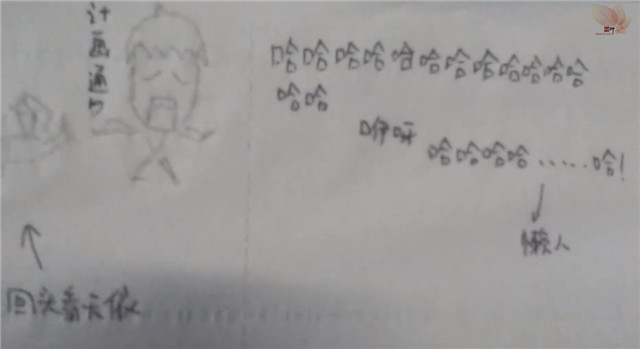 计画通り
哈哈哈哈哈哈哈哈哈哈哈哈
哈哈
咿呀
哈哈哈哈……哈!
懒人
回头看天依